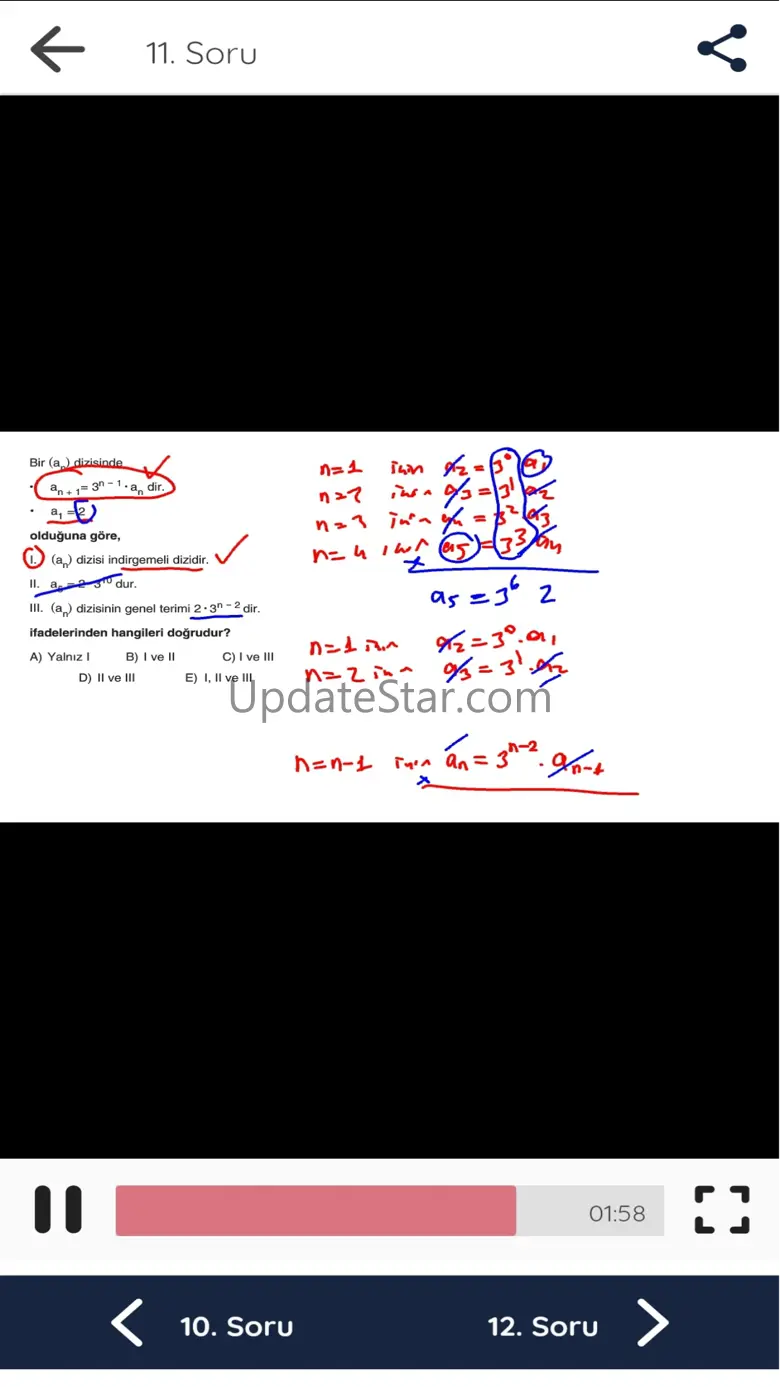 11. Soru
Bir (aₙ) dizisinde
• aₙ₊₁ = 3ⁿ⁻¹ · aₙ dir.
• a₁ = 2
olduğuna göre,
I. (aₙ) dizisi indirgemeli dizidir.
II. a₅ = 2 · 3¹⁰ dur.
III. (aₙ) dizisinin genel terimi 2 · 3ⁿ⁻² dir.
ifadelerinden hangileri doğrudur?
A) Yalnız I B) I ve II C) I ve III
D) II ve III E) I, II ve III
n=1 için a₂ = 3⁰ a₁
n=2 için a₃ = 3¹ a₂
n=3 için a₄ = 3² a₃
n=4 için a₅ = 3³ a₄
x
a₅ = 3⁶ 2
n=1 için a₂ = 3⁰ . a₁
n=2 için a₃ = 3¹ . a₂
UpdateStar.com
n=n-1 için aₙ = 3ⁿ⁻² . aₙ₋₁
x
01:58
10. Soru 12. Soru